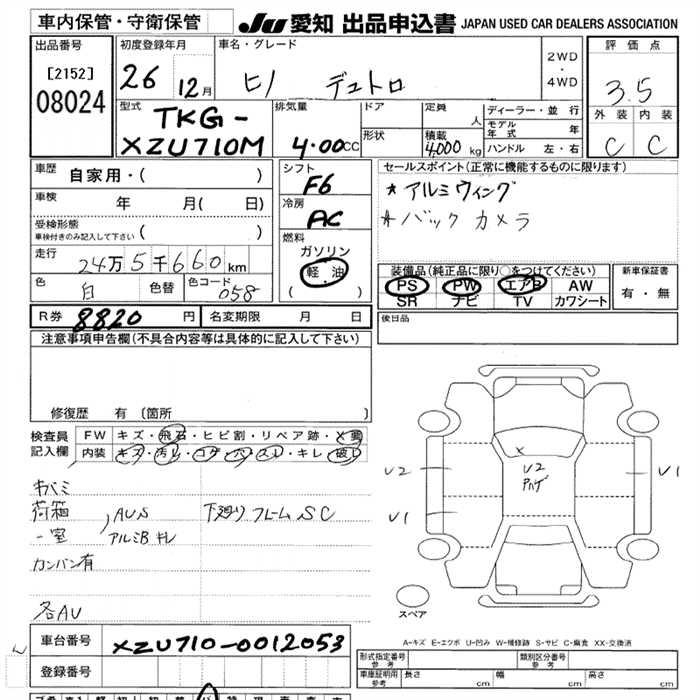 車内保管・守衛保管
JU 愛知 出品申込書 JAPAN USED CAR DEALERS ASSOCIATION
出品番号
[2152]
08024
初度登録年月
26 12月
車名・グレード
ヒノ デュトロ
2WD
・
4WD
評価点
3.5
外装 内装
C C
型式
TKG-
XZU710M
排気量
4.00cc
ドア
形状
定員
人
積載
4,000 kg
ディーラー・並行
モデル年式 年
ハンドル 左・右
車歴
自家用・( )
車検
年 月( 日)
受検形態
車検付きのみ記入して下さい ( )
走行
24万5千660km
色
白
色替
色コード
058
シフト
F6
冷房
AC
燃料
ガソリン
軽油
( )
セールスポイント(正常に機能するものに限ります)
* アルミウィング
* バックカメラ
装備品(純正品に限り○をつけてください)
PS PW エアB AW
SR ナビ TV カワシート
新車保証書
有・無
R券 8820 円
名変期限 月 日
後日品
注意事項申告欄(不具合内容等は具体的に記入して下さい)
修復歴 有 (箇所 )
検査員
記入欄
FW キズ・飛石・ヒビ割・リペア跡・X要
内装 キズ・汚レ・コゲ・穴・スレ・キレ・破レ
キバミ
荷箱
一室
AUS
アルミB キレ
下廻り フレーム SC
カンバン有
各AU
U2
U1
U2
アハゲ
U1
スペア
A-キズ E-エクボ U-凹み W-補修跡 S-サビ C-腐食 XX-交換済
車台番号
XZU710-0012053
登録番号
形式指定番号
参考
類別区分番号
参考
車庫証明用
参考
長さ 幅 高さ